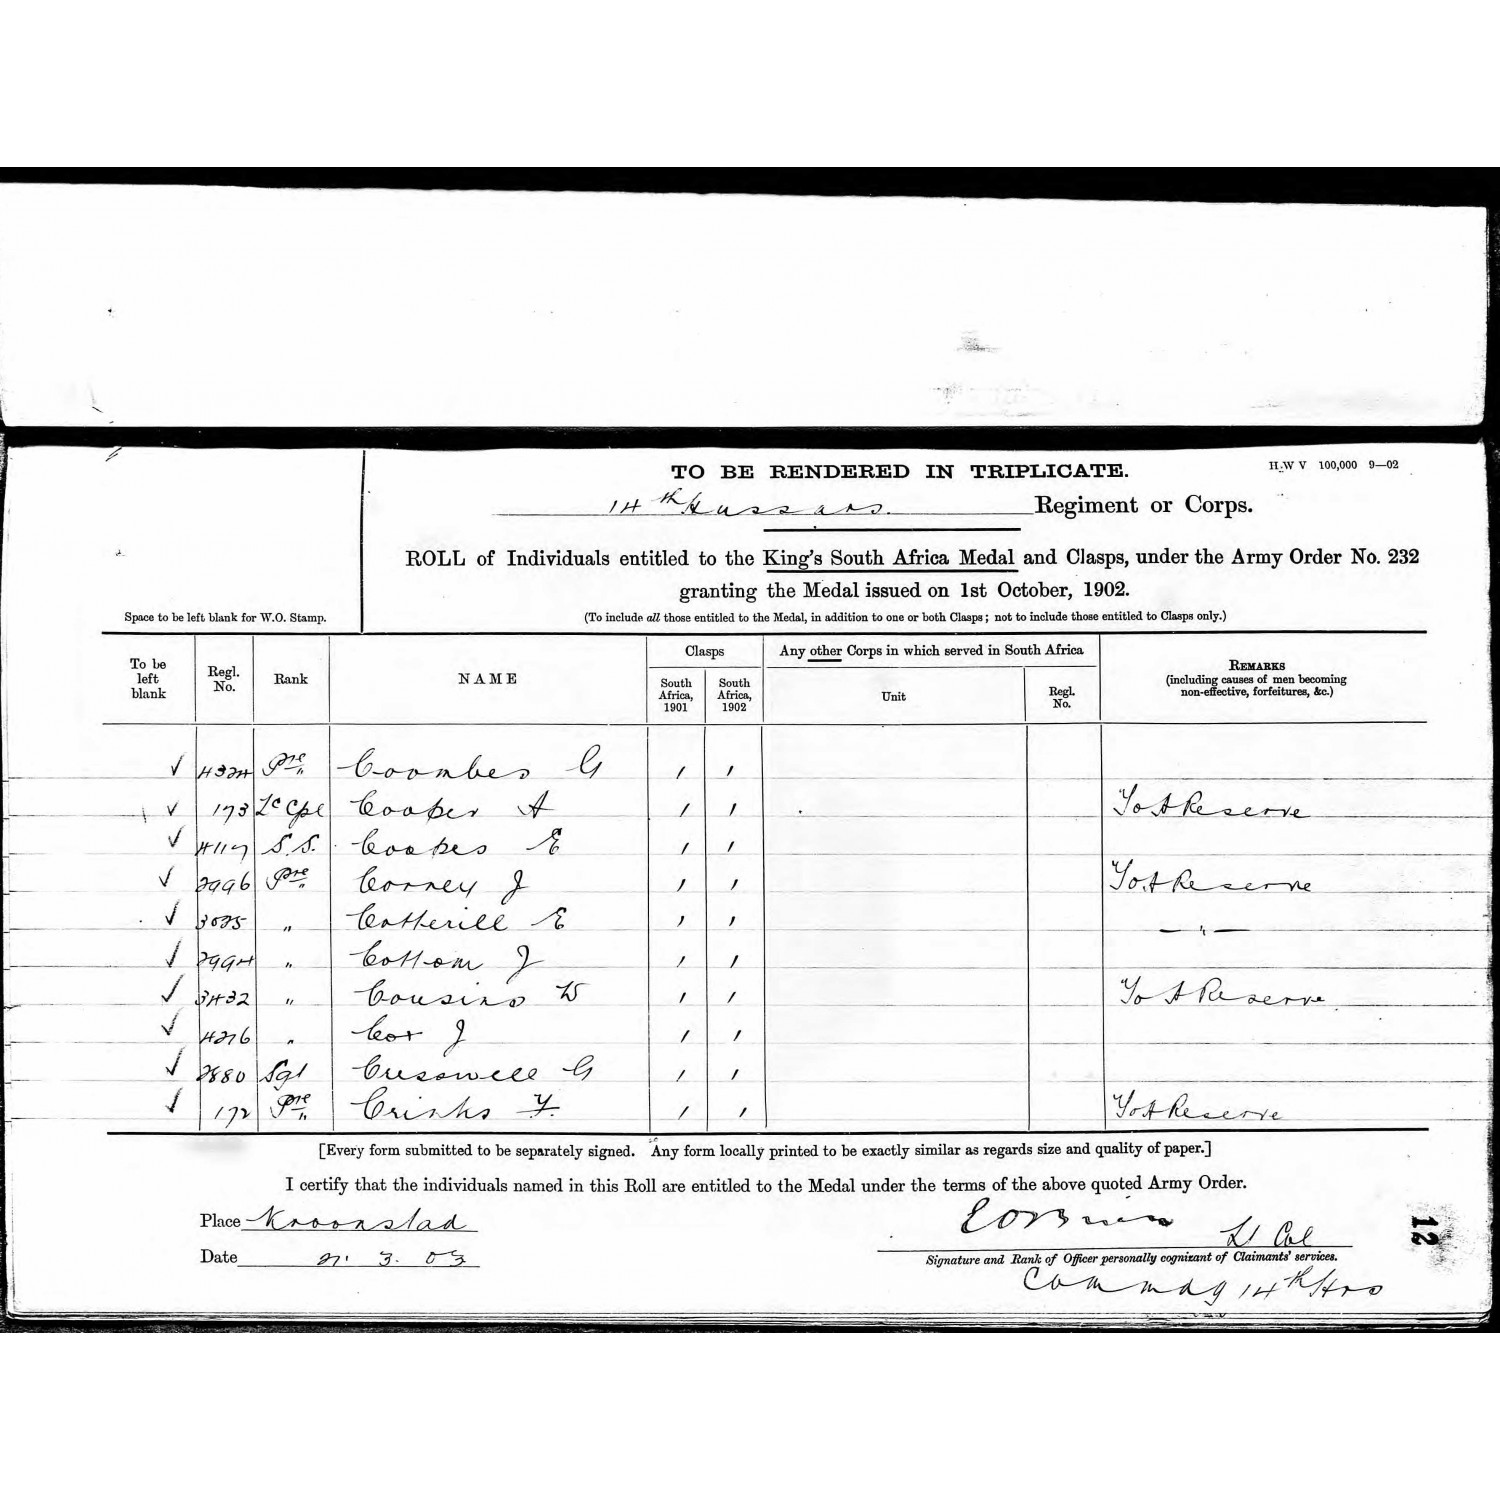 TO BE RENDERED IN TRIPLICATE.
H.W V 100,000 9—02
14th Hussars. Regiment or Corps.
ROLL of Individuals entitled to the King's South Africa Medal and Clasps, under the Army Order No. 232
granting the Medal issued on 1st October, 1902.
Space to be left blank for W.O. Stamp.
(To include all those entitled to the Medal, in addition to one or both Clasps; not to include those entitled to Clasps only.)
To be left blank
Regl. No.
Rank
NAME
Clasps
South Africa, 1901
South Africa, 1902
Any other Corps in which served in South Africa
Unit
Regl. No.
REMARKS
(including causes of men becoming
non-effective, forfeitures, &c.)
✓ 4324 Pte Coombes G / /
✓ 173 Lc Cpl Cooper A / / To A Reserve
✓ 4117 S.S. Coopes E / /
✓ 2996 Pte Corney J / / To A Reserve
✓ 3025 " Cotherill E / / — " —
✓ 2994 " Cottom J / /
✓ 3432 " Cousins W / / To A Reserve
✓ 4276 " Cox J / /
✓ 2880 Sgt Cresswell G / /
✓ 172 Pte Crinks F. / / To A Reserve
[Every form submitted to be separately signed. Any form locally printed to be exactly similar as regards size and quality of paper.]
I certify that the individuals named in this Roll are entitled to the Medal under the terms of the above quoted Army Order.
Place Kroonstad
Date 3. 03
Lt Col
Signature and Rank of Officer personally cognizant of Claimants' services.
Commdg 14th Hrs
12